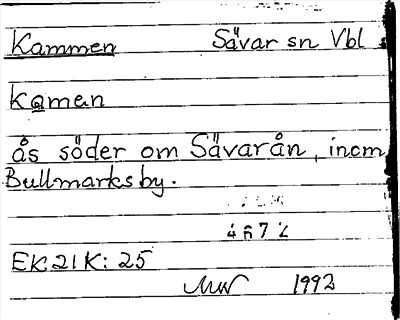 Kammen Sävar sn Vbl
kamen
ås söder om Sävarån, inom
Bullmarks by.
4672
EK:21K:25
1992